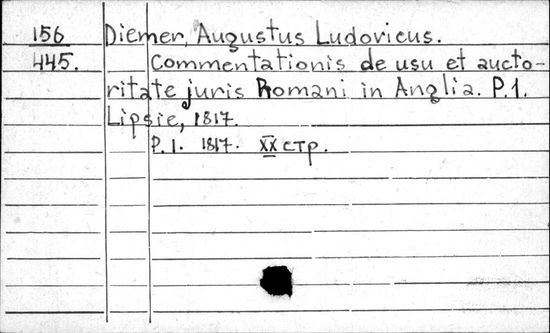 156 Diemer, Augustus Ludovicus.
445. Commentationis de usu et aucto-
ritate juris Romani in Anglia. P.1.
Lipsie, 1817.
P.1. 1817. XX стр.